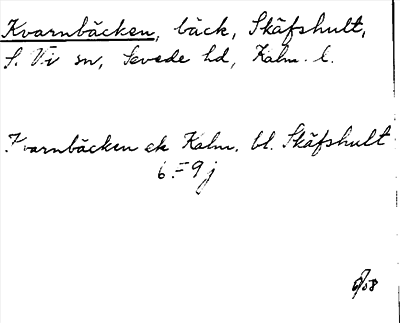 Kvarnbäcken, bäck, Skäfshult,
S. Vi sn, Sevede hd, Kalm. l.
Kvarnbäcken ek Kalm. bl. Skäfshult
6:-9j